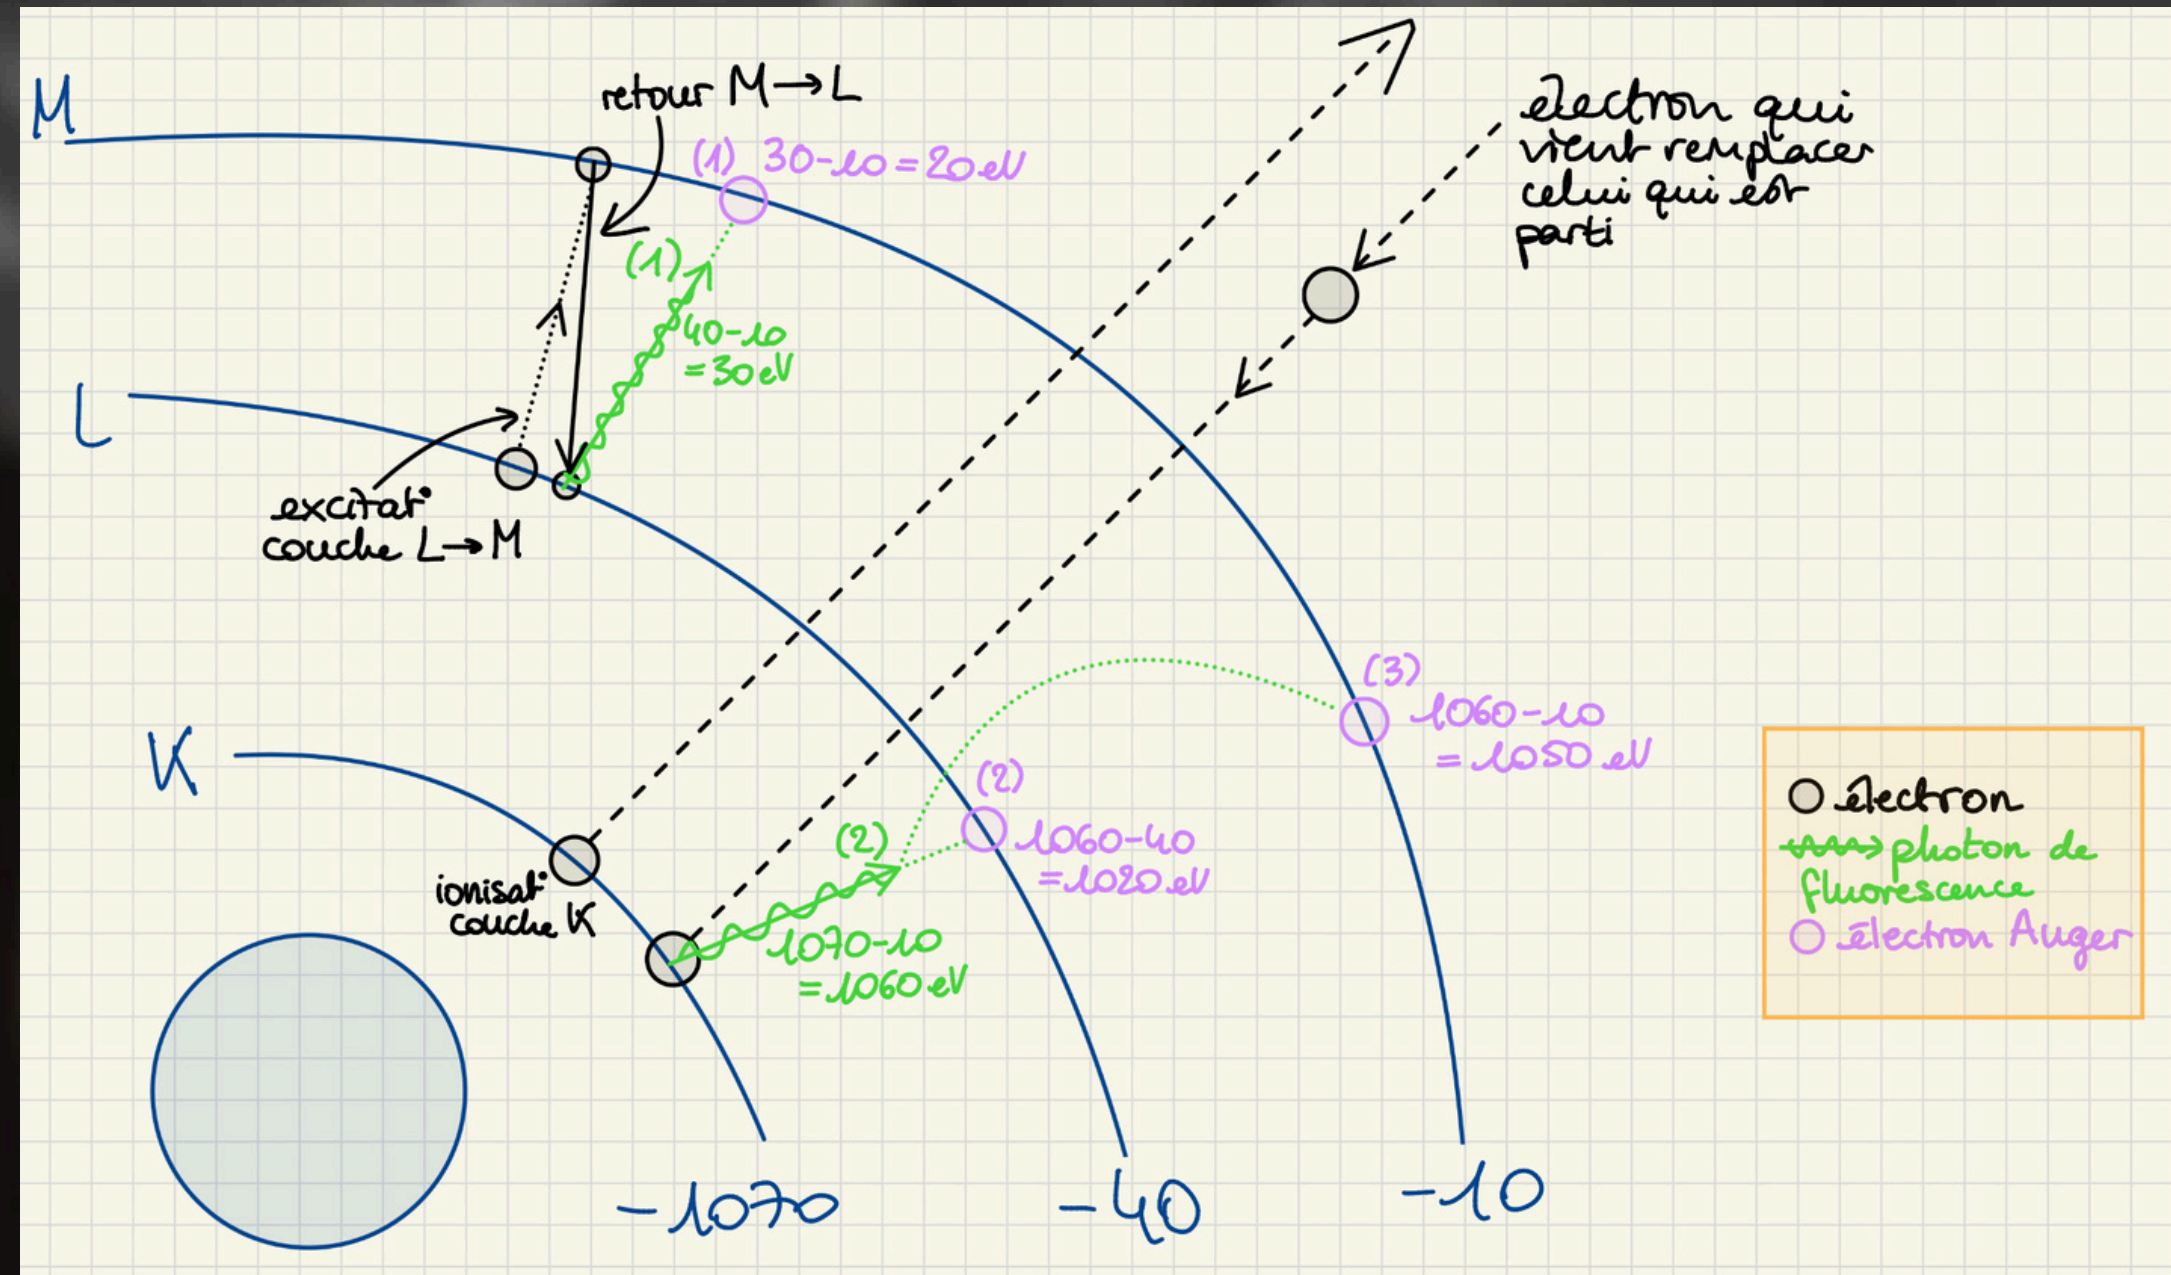 M
retour M→L
(1) 30-10=20eV
électron qui
vient remplacer
celui qui est
parti
(1)
40-10
=30eV
L
excitat°
couche L→M
K
(3)
1060-10
=1050 eV
(2)
1060-40
=1020 eV
(2)
ionisat°
couche K
1070-10
=1060 eV
électron
photon de
fluorescence
électron Auger
-1070
-40
-10